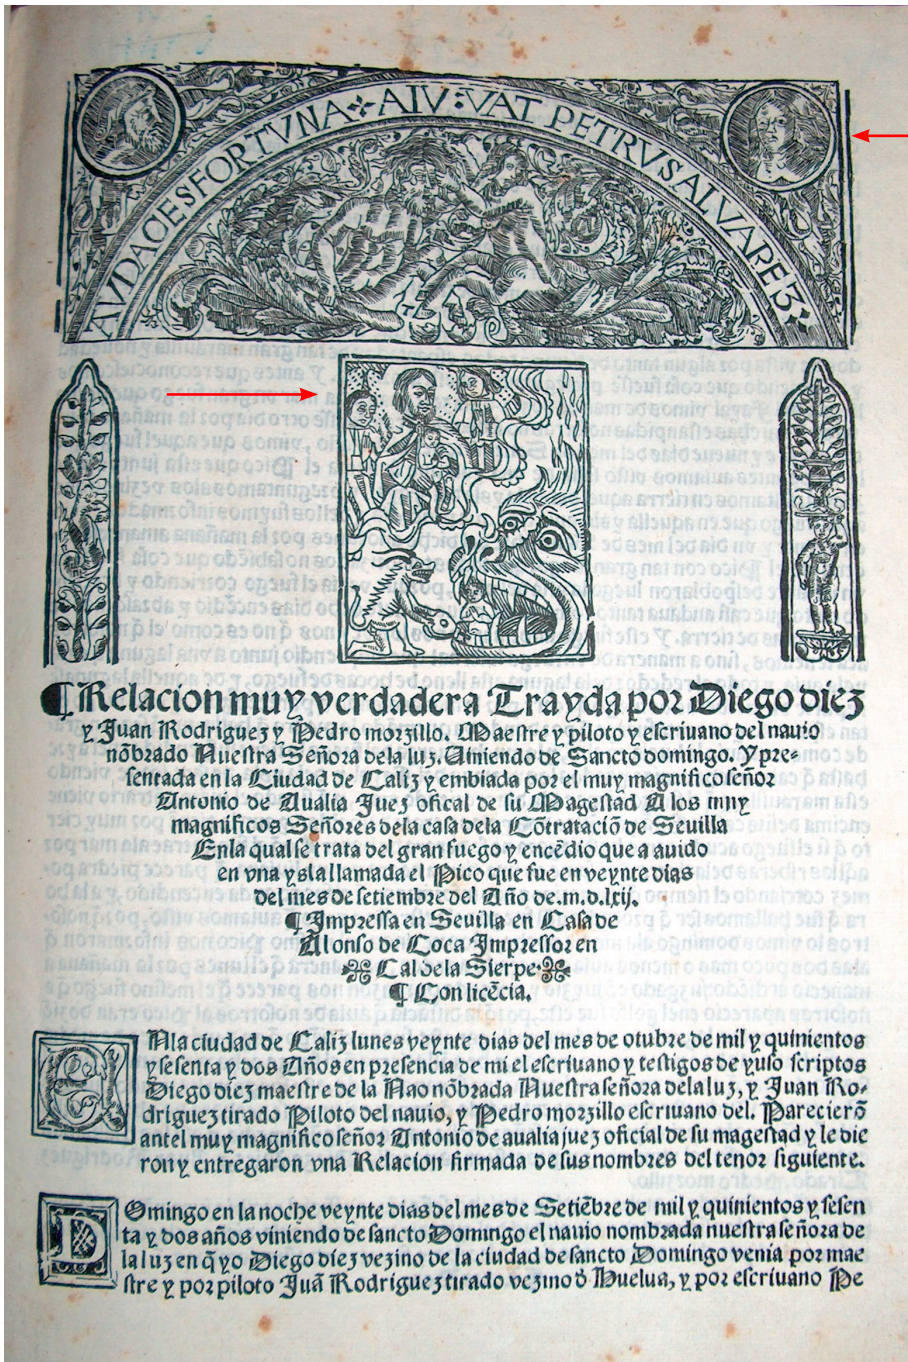 AVDACES FORTVNA AIV:VAT PETRVS ALVAREZ
¶ Relacion muy verdadera Trayda por Diego diez
y Juan Rodriguez y Pedro morzillo. Maestre y piloto y escriuano del nauio
nōbrado Nuestra Señora dela luz. Uiniendo de Sancto domingo. Y pre-
sentada en la Ciudad de Caliz y embiada por el muy magnifico señor
Antonio de Aualia Juez ofical de su Magestad A los muy
magnificos Señores dela casa dela Cōtrataciō de Seuilla
Enla qual se trata del gran fuego y encēdio que a auido
en vna ysla llamada el Pico que fue en veynte dias
del mes de setiembre del Año de.m.d.lxij.
¶ Impressa en Seuilla en Casa de
Alonso de Coca Impressor en
Cal dela Sierpe
¶ Con licēcia.
ENla ciudad de Caliz lunes veynte dias del mes de otubre de mil y quinientos
y sesenta y dos Años en presencia de mi el escriuano y testigos de yuso scriptos
Diego diez maestre de la Nao nōbrada Nuestra señora dela luz, y Juan Ro-
driguez tirado Piloto del nauio, y Pedro morzillo escriuano del. Parecierō
antel muy magnifico señor Antonio de aualia juez oficial de su magestad y le die
ron y entregaron vna Relacion firmada de sus nombres del tenor siguiente.
DOmingo en la noche veynte dias del mes de Setiēbre de mil y quinientos y sesen
ta y dos años viniendo de sancto Domingo el nauio nombrada nuestra señora de
la luz en q̄ yo Diego diez vezino de la ciudad de sancto Domingo venia por mae
stre y por piloto Juā Rodriguez tirado vezino d̄ Huelua, y por escriuano Pe